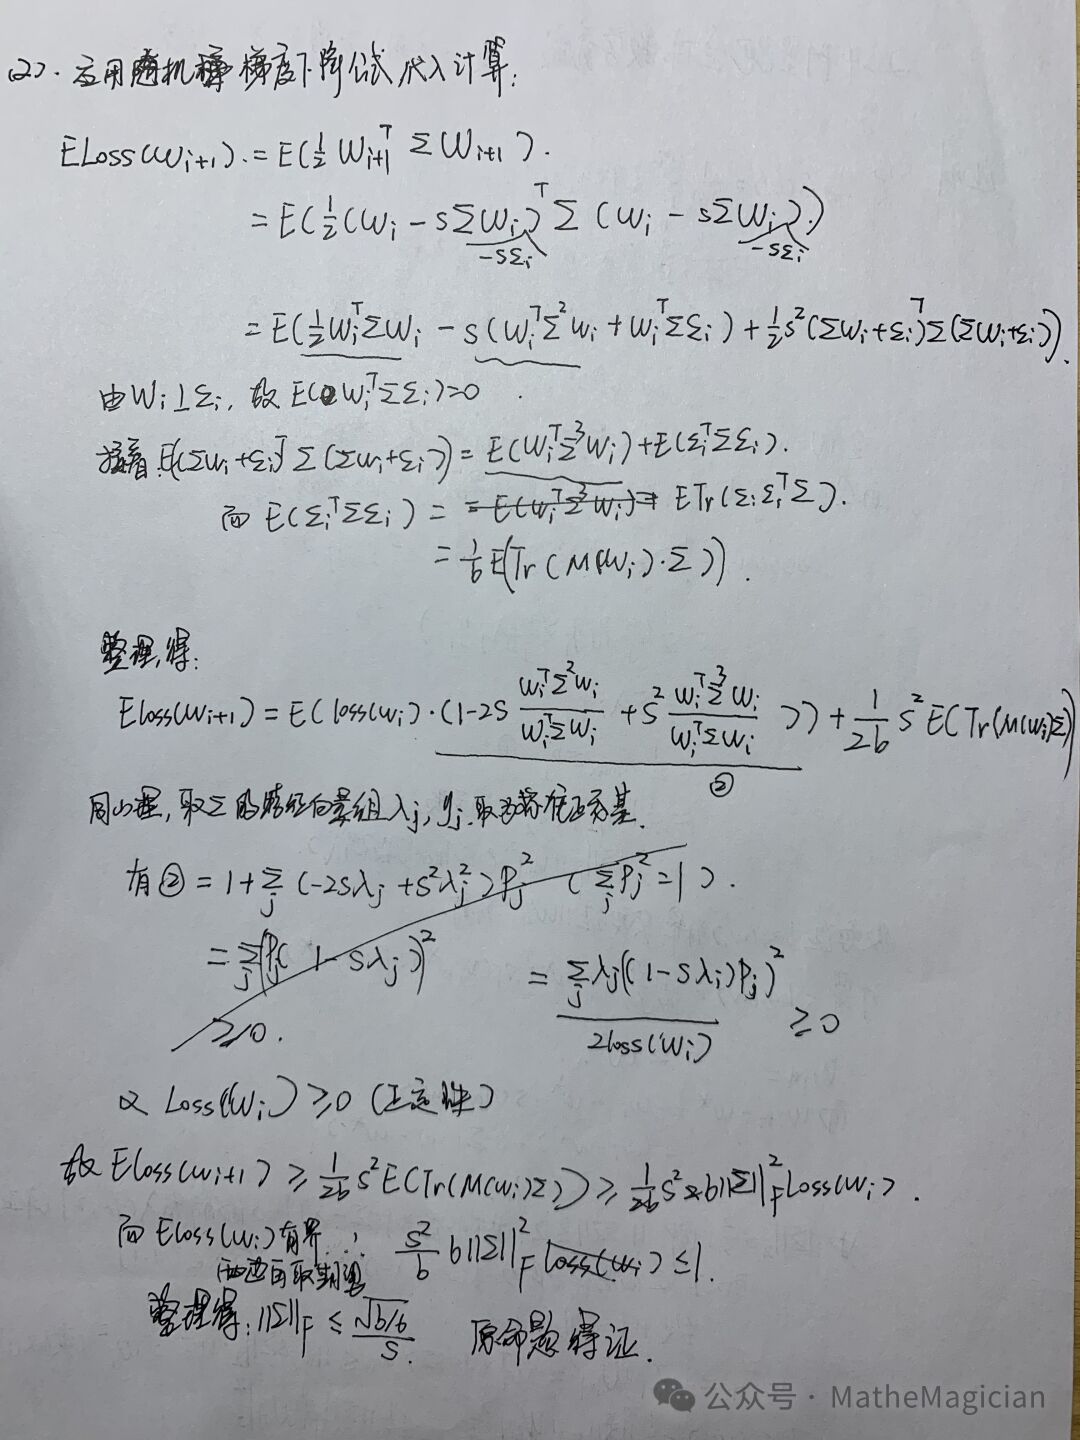 (2). 应用随机梯度下降公式代入计算:
ELoss(W_{i+1}). = E(½ W_{i+1}^T Σ W_{i+1}).
= E(½(W_i - sΣW_i)^T Σ (W_i - sΣW_i).)
-sε_i -sε_i
= E(½W_i^TΣW_i - s(W_i^TΣ²W_i + W_i^TΣε_i) + ½s²(ΣW_i+ε_i)^TΣ(ΣW_i+ε_i)).
由W_i⊥ε_i, 故E(W_i^TΣε_i)=0.
接着 E(ΣW_i+ε_i)^TΣ(ΣW_i+ε_i) = E(W_i^TΣ³W_i)+E(ε_i^TΣε_i).
而 E(ε_i^TΣε_i) = = E(W_i^TΣ³W_i) = ETr(ε_iε_i^TΣ).
= 1/b E(Tr(M(W_i)·Σ)).
整理,得:
Eloss(W_{i+1}) = E(loss(W_i)·(1-2s W_i^TΣ²W_i / W_i^TΣW_i + s² W_i^TΣ³W_i / W_i^TΣW_i)) + 1/2b s² E(Tr(M(W_i)Σ)
②
同小理, 取Σ的特征向量组λ_j, y_j.取为标准正交基.
有② = 1+Σ_j(-2sλ_j+s²λ_j²)P_j² (Σ_j P_j²=1).
= Σ_j(P_j(1-sλ_j))² = Σ_j λ_j((1-sλ_j)P_j)² / 2loss(W_i) ≥0
≥0.
又 Loss(W_i)≥0 (正定性)
故 Eloss(W_{i+1}) ≥ 1/2b s²E(Tr(M(W_i)Σ)) ≥ 1/2b s²·2·6||Σ||_F² Loss(W_i).
而 Eloss(W_i)有界 ∴ s²/b 6||Σ||_F² loss(W_i) ≤1.
两边再取期望
整理得: ||Σ||_F ≤ √(b/6) / s. 原命题得证.
公众号·MatheMagician